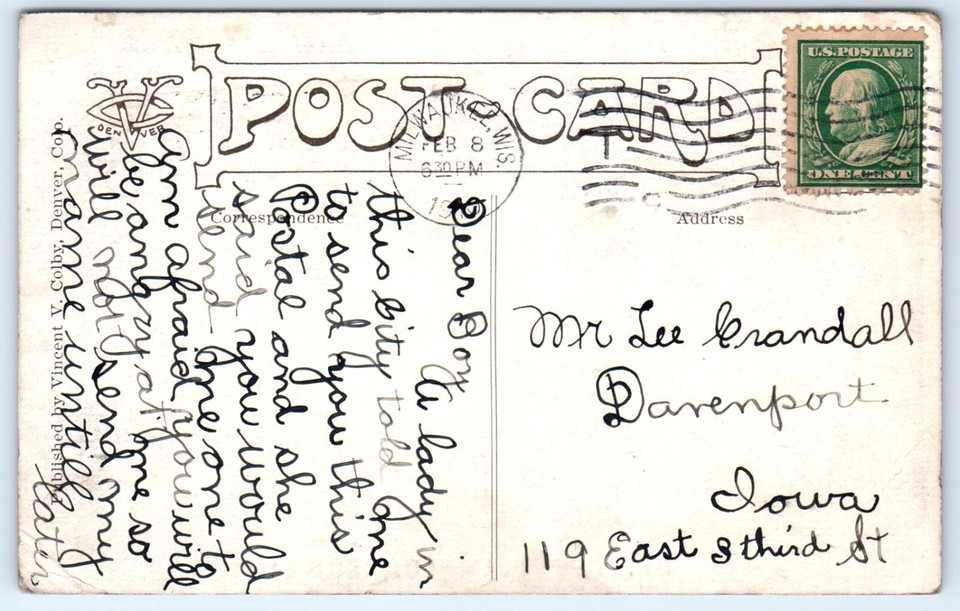 POST CARD
U.S. POSTAGE
ONE CENT
MILWAUKEE, WIS.
FEB 8
6 30 PM
DENVER
Published by Vincent V. Colby, Denver, Colo.
Correspondence
Address
Dear Boy
A lady in
this City told me
to send you this
Postal and she
said you would
send me one to
am afraid you will
be angry at me so
will not send my
name until
later
Mr Lee Crandall
Davenport
Iowa
119 East 3 third St